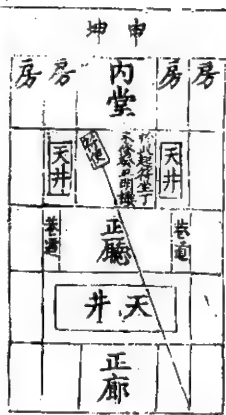 坤申
房房内堂房房
天井
天井
巷道
正廳
巷道
天井
正廊